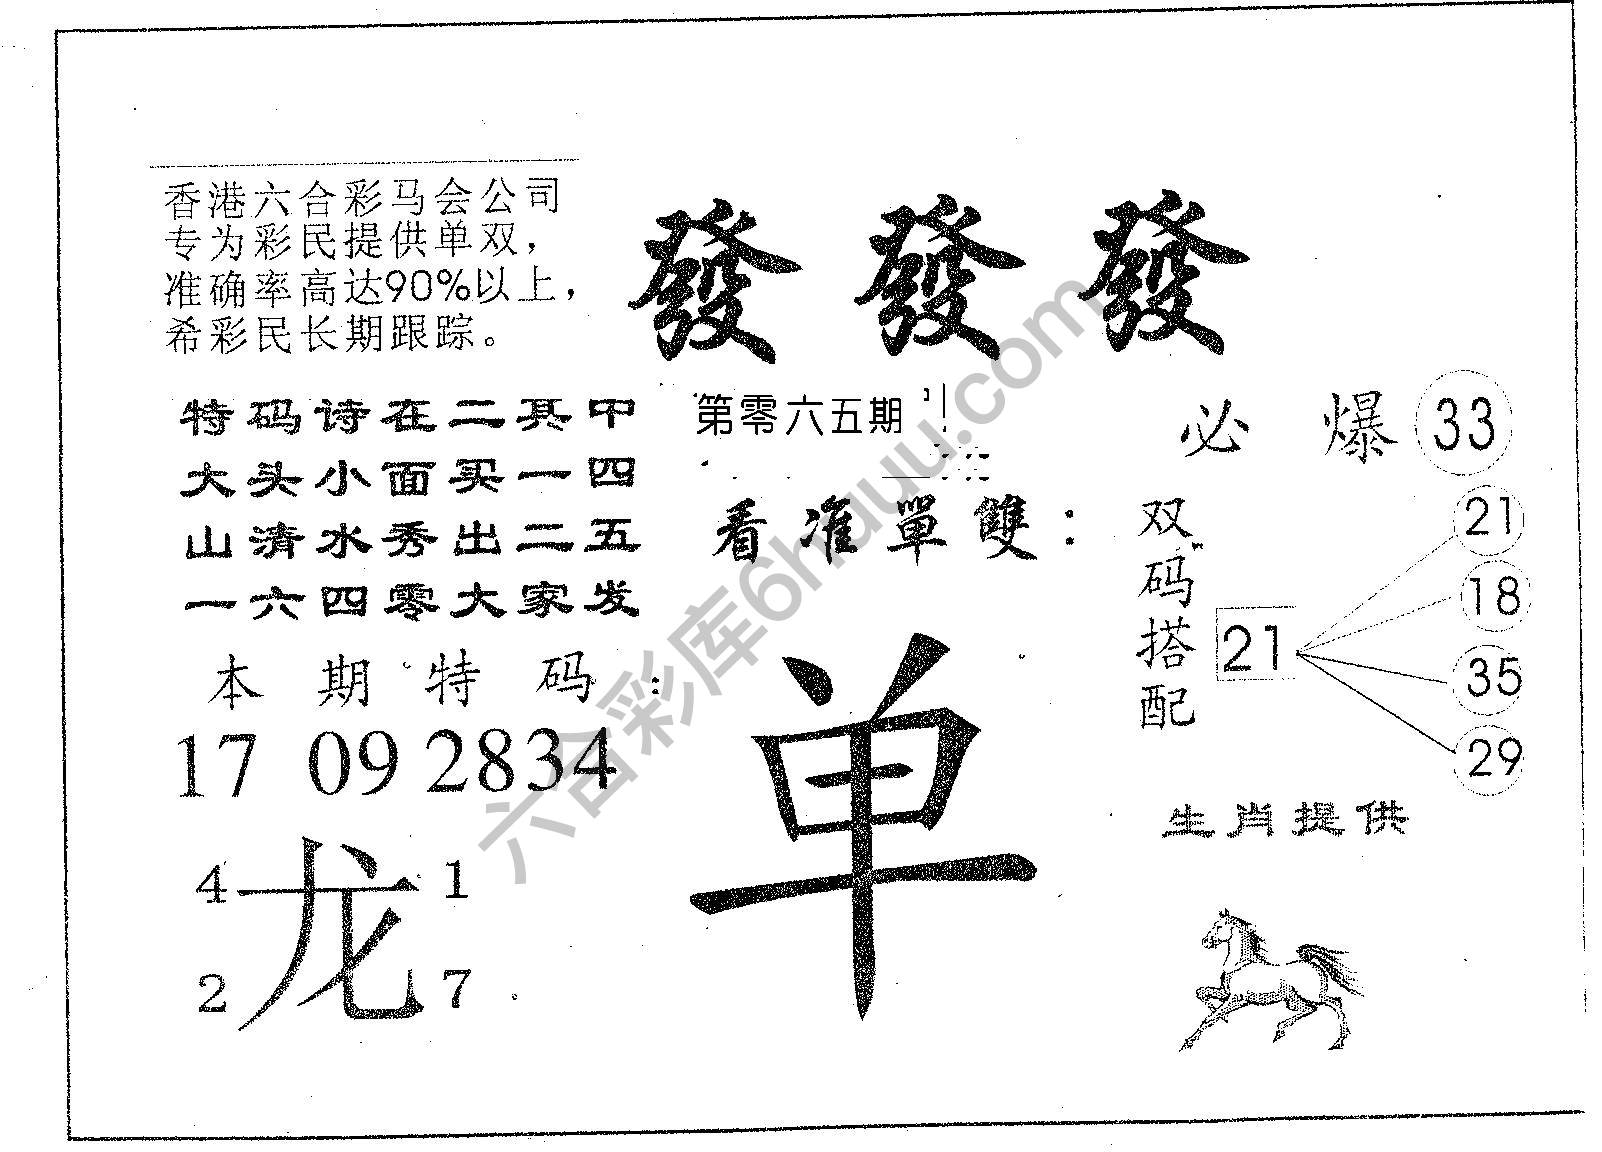 香港六合彩马会公司
专为彩民提供单双，
准确率高达90%以上，
希彩民长期跟踪。
發發發
特码诗在二其中
大头小面买一四
山清水秀出二五
一六四零大家发
第零六五期
必爆33
看准單雙：
双码搭配
21
21
18
35
29
本期特码：
17 09 28 34
龙
4 1
2 7
单
生肖提供
六合彩库6huuu.com